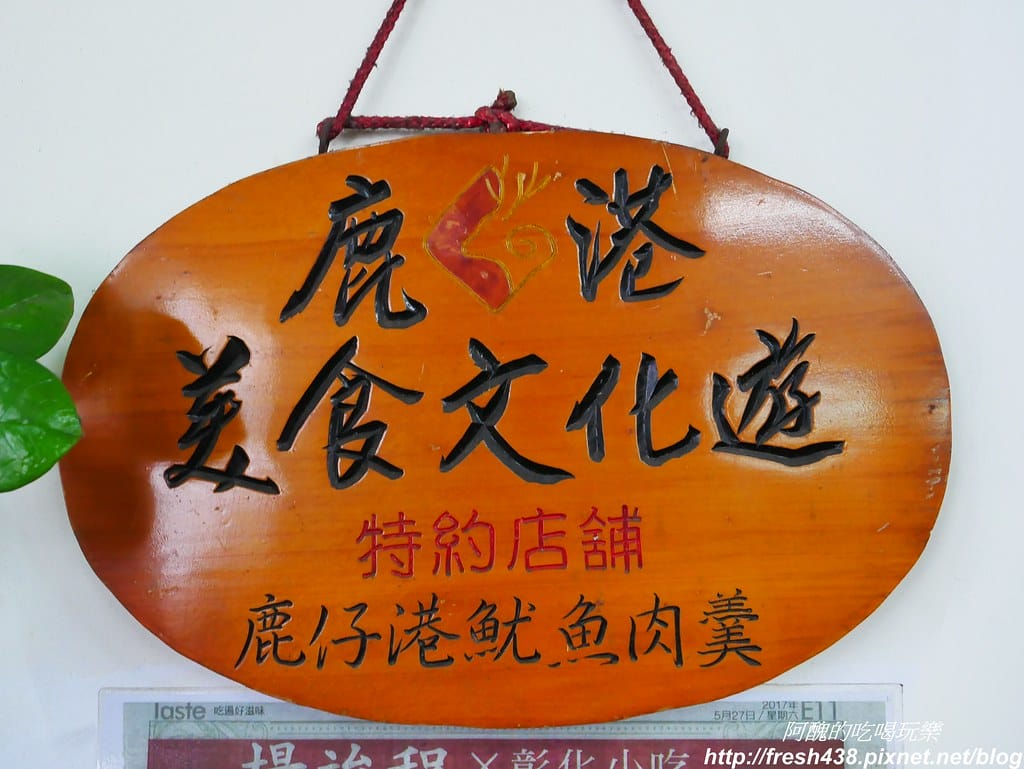 鹿港
美食文化遊
特約店舖
鹿仔港魷魚肉羹
taste 吃遍好滋味
2017年
5月27日/星期六 E11
楊治程×彰化小吃
阿醜的吃喝玩樂
http://fresh438.pixnet.net/blog